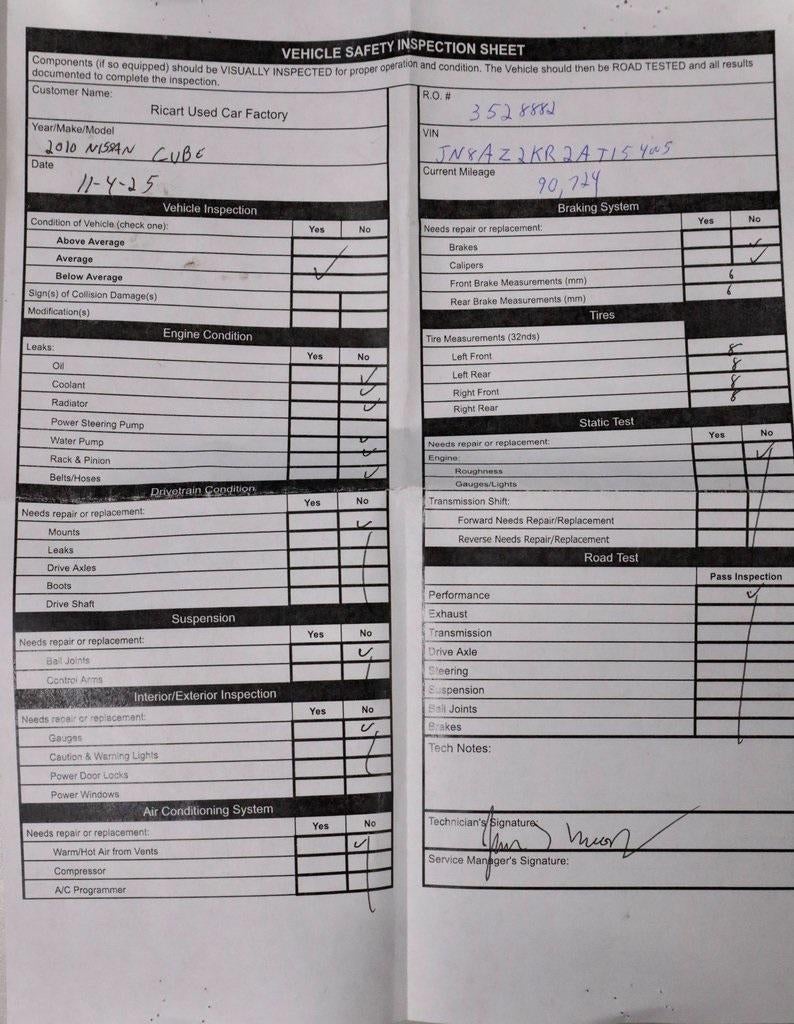 VEHICLE SAFETY INSPECTION SHEET
Components (if so equipped) should be VISUALLY INSPECTED for proper operation and condition. The Vehicle should then be ROAD TESTED and all results
documented to complete the inspection.
Customer Name:
Ricart Used Car Factory
Year/Make/Model
2010 NISSAN CUBE
Date
11-4-25
Vehicle Inspection
Condition of Vehicle (check one): Yes No
Above Average
Average
Below Average
Sign(s) of Collision Damage(s)
Modification(s)
Engine Condition
Leaks: Yes No
Oil
Coolant
Radiator
Power Steering Pump
Water Pump
Rack & Pinion
Belts/Hoses
Drivetrain Condition
Needs repair or replacement: Yes No
Mounts
Leaks
Drive Axles
Boots
Drive Shaft
Suspension
Needs repair or replacement: Yes No
Ball Joints
Control Arms
Interior/Exterior Inspection
Needs repair or replacement: Yes No
Gauges
Caution & Warning Lights
Power Door Locks
Power Windows
Air Conditioning System
Needs repair or replacement: Yes No
Warm/Hot Air from Vents
Compressor
A/C Programmer
R.O. #
3528882
VIN
JN8AZ2KR2AT15
Current Mileage
90,724
Braking System
Needs repair or replacement: Yes No
Brakes
Calipers
Front Brake Measurements (mm) 6
Rear Brake Measurements (mm) 6
Tires
Tire Measurements (32nds)
Left Front 8
Left Rear 8
Right Front 8
Right Rear 8
Static Test
Needs repair or replacement: Yes No
Engine:
Roughness
Gauges/Lights
Transmission Shift:
Forward Needs Repair/Replacement
Reverse Needs Repair/Replacement
Road Test
Pass Inspection
Performance
Exhaust
Transmission
Drive Axle
Steering
Suspension
Ball Joints
Brakes
Tech Notes:
Technician's Signature:
Service Manager's Signature: